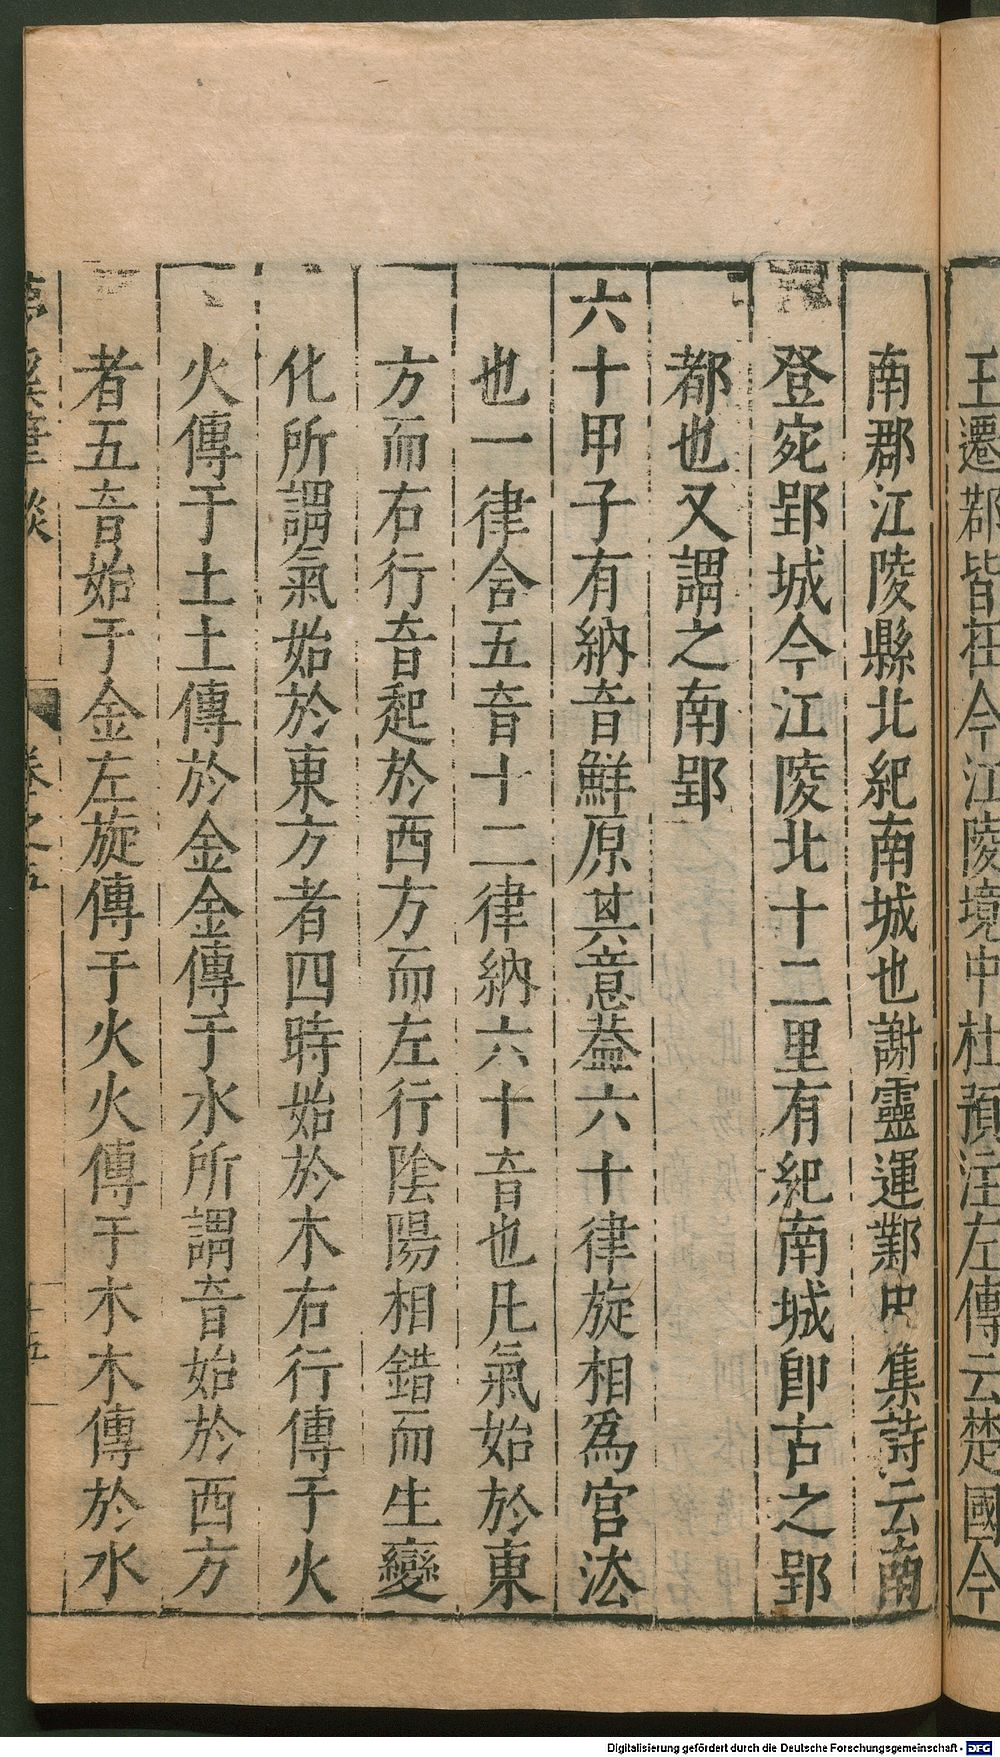 王遷鄀皆在今江陵境中杜預注左傳云楚國今
南郡江陵縣北紀南城也謝靈運鄴中集詩云南
登宛郢城今江陵北十二里有紀南城卽古之郢
都也又謂之南郢
六十甲子有納音鮮原其意葢六十律旋相爲宮法
也一律含五音十二律納六十音也凡氣始於東
方而右行音起於西方而左行陰陽相錯而生變
化所謂氣始於東方者四時始於木右行傳于火
火傳于土土傳於金金傳于水所謂音始於西方
者五音始于金左旋傳于火火傳于木木傳於水
夢溪筆談 卷之五 十五
Digitalisierung gefördert durch die Deutsche Forschungsgemeinschaft - DFG